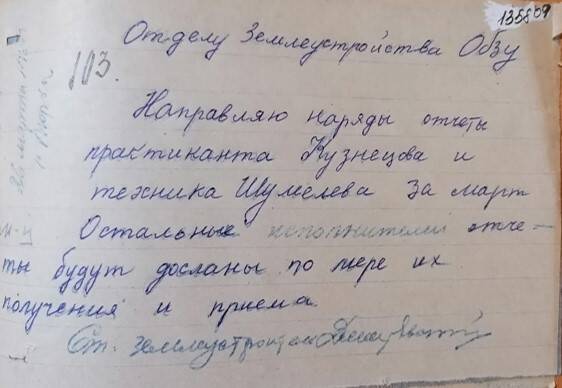 135809
Отделу Землеустройства Обзу
103.
Направляю наряды отчеты
практиканта Кузнецова и
техника Шумелева за март
Остальные исполнители отче-
ты будут досланы по мере их
получения и приема.
Ст. землеустроитель